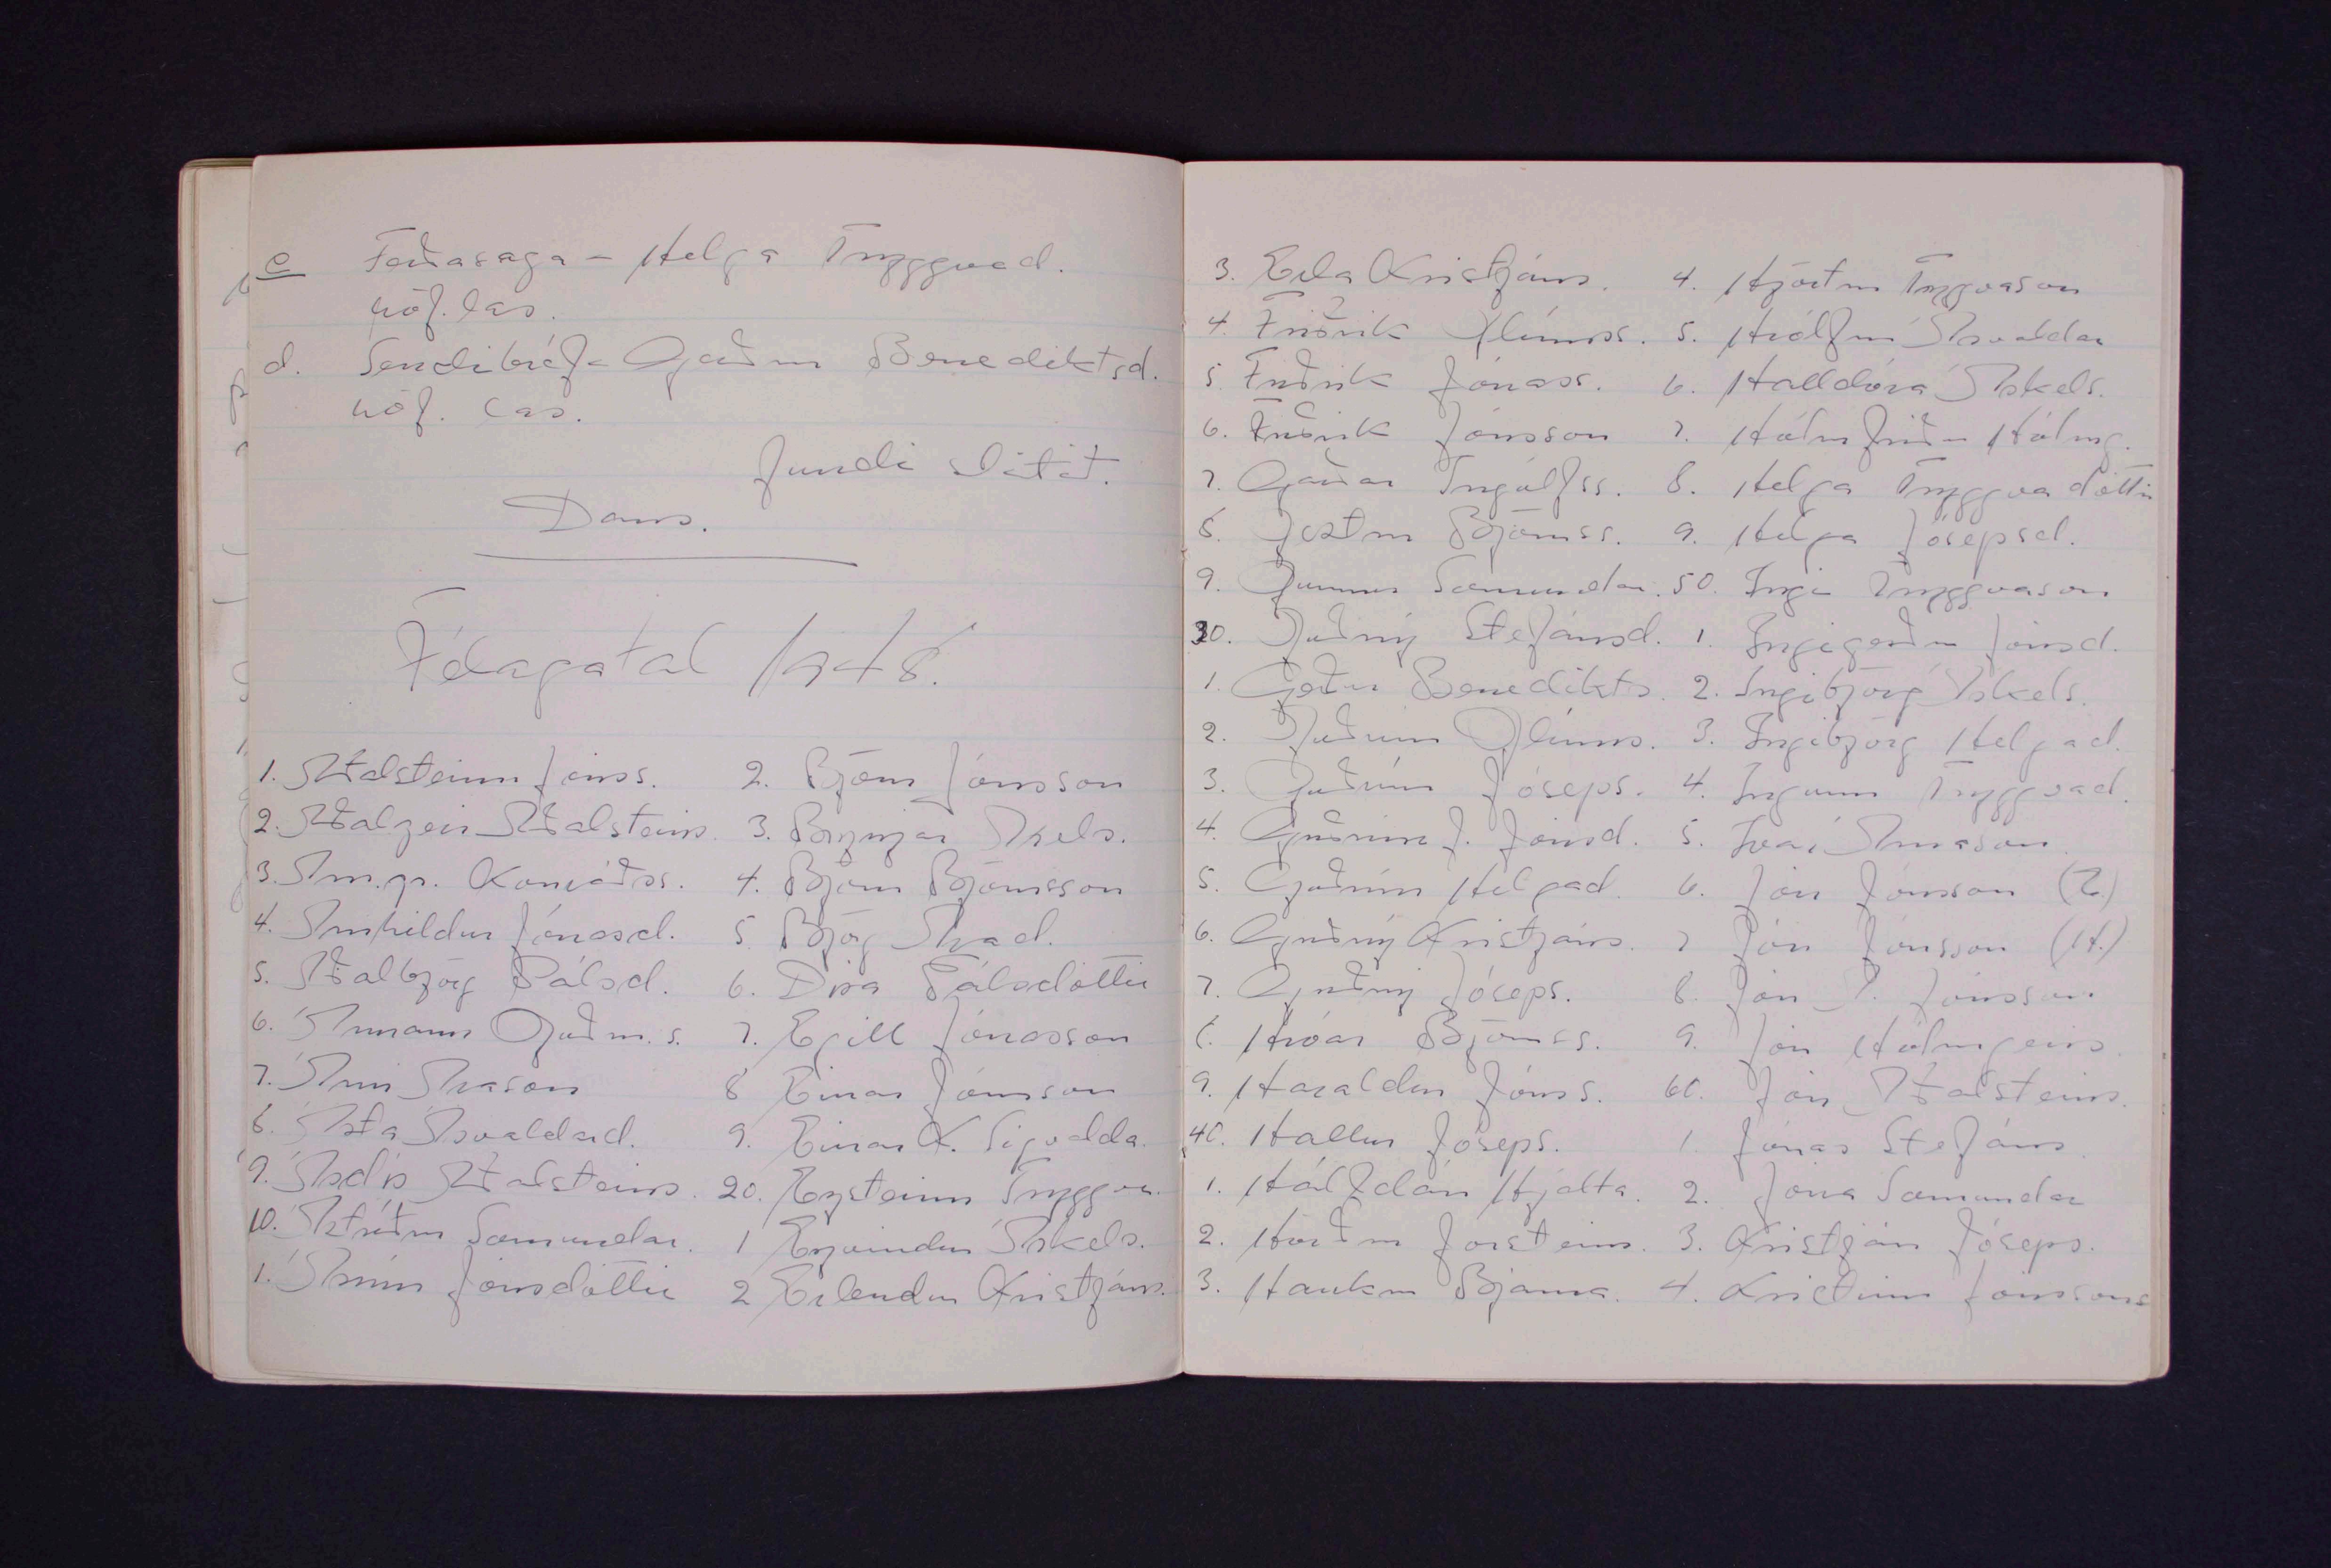 c Ferðasaga - Helga Tryggvad.
höf. las.
d. Sendibréf - Gerður Benediktsd.
höf. las.
fundi slitið.
Dans.
Félagatal 1948.
1. Aðalsteinn Jónss.
2. Aðalgeir Aðalsteins.
3. Arn.gr. Konráðss.
4. Arnhildur Jónasd.
5. Aðalbjörg Pálsd.
6. Ármann Guðm.s.
7. Árni Árason
8. Ásta Ásvaldard.
9. Ásdís Aðalsteins.
10. Ástríður Sæmundar.
1. Árnína Jónsdóttir
2. Björn Jónsson
3. Brynjar Áskels.
4. Björn Björnsson
5. Björg Árad.
6. Dísa Pálsdóttir
7. Egill Jónasson
8 Einar Jónsson
9. Einar K. Sigvalda.
20. Eysteinn Tryggva.
1 Eyvindur Áskels.
2 Erlendur Kristjáns.
3. Erla Kristjáns.
4. Friðrik Glúmss.
5. Friðrik Jónass.
6. Friðrik Jónsson
7. Garðar Ingólfss.
8. Gestur Björnss.
9. Gunnur Sæmundar.
30. Guðný Stefánsd.
1. Gerður Benedikts.
2. Guðrún Glúms.
3. Guðrún Jóseps.
4. Guðrún J. Jónsd.
5. Guðrún Helgad.
6. Guðný Kristjáns.
7. Guðný Jóseps.
8. Hróar Björnss.
9. Haraldur Jónss.
40. Hallur Jóseps.
1. Hálfdán Hjalta.
2. Hörður Þorsteins.
3. Haukur Bjarna.
4. Hjörtur Tryggvason
5. Hrólfur Ásvaldar
6. Halldóra Áskels.
7. Hólmfríður Hólmg.
8. Helga Tryggvadóttir
9. Helga Jósepsd.
50. Ingi Tryggvason
1. Ingigerður Jónsd.
2. Ingibjörg Áskels.
3. Ingibjörg Helgad.
4. Ingunn Tryggvad.
5. Ívar Árnason
6. Jón Jónsson (E.)
7 Jón Jónsson (H.)
8. Jón Á. Jónsson
9. Jón Hólmgeirs.
60. Jón Aðalsteins.
1. Jónas Stefáns.
2. Jóna Sæmundar
3. Kristján Jóseps.
4. Kristinn Jónssons